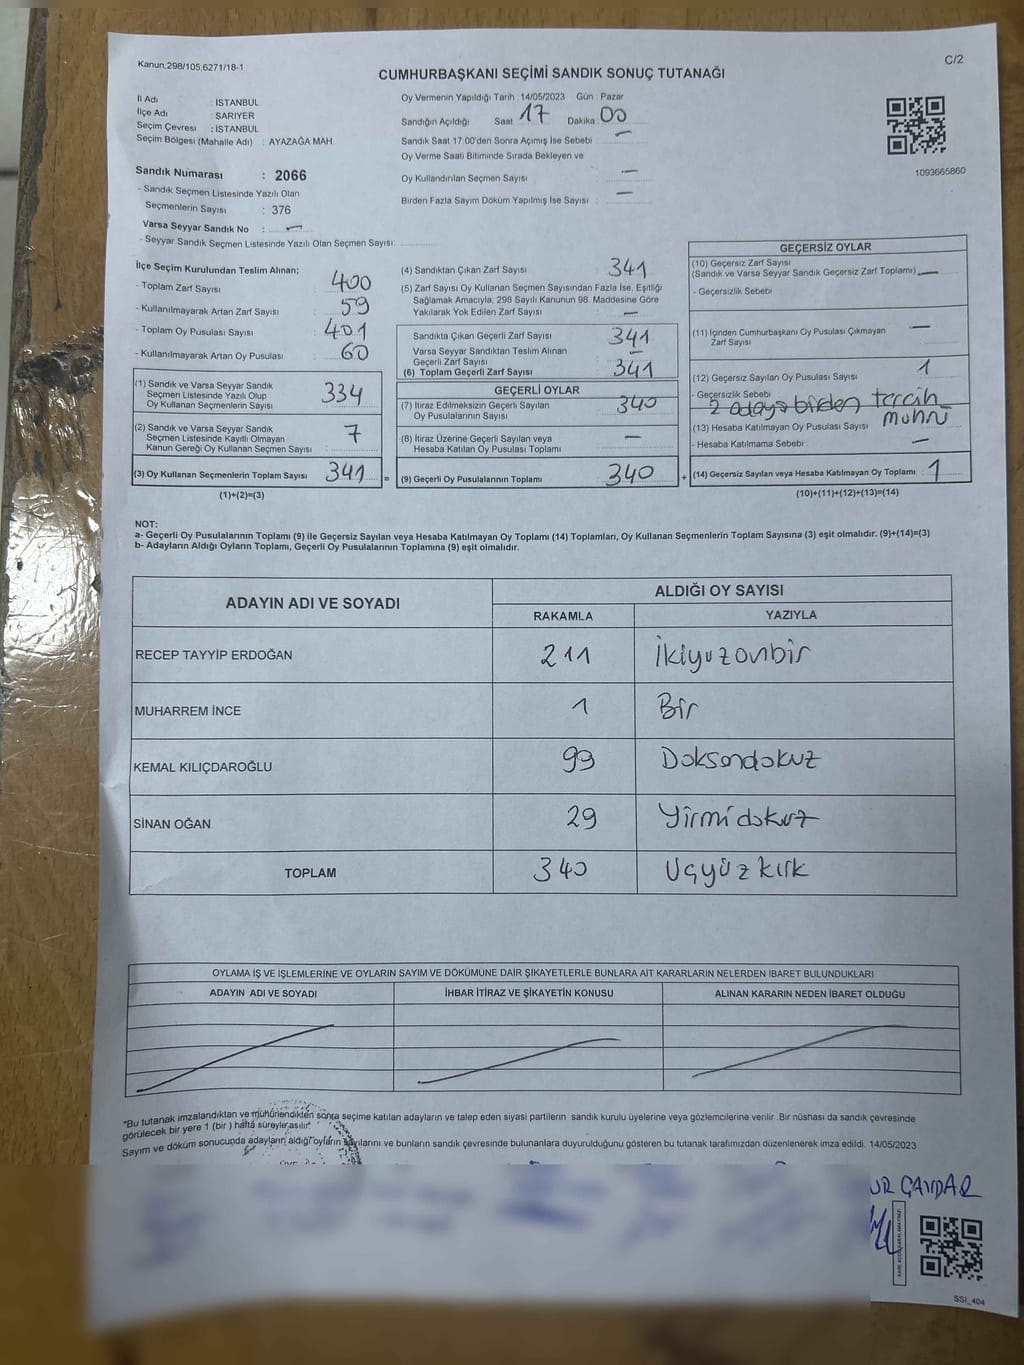 Kanun;298/105,6271/18-1
C/2
CUMHURBAŞKANI SEÇİMİ SANDIK SONUÇ TUTANAĞI
İl Adı : İSTANBUL
İlçe Adı : SARIYER
Seçim Çevresi : İSTANBUL
Seçim Bölgesi (Mahalle Adı) : AYAZAĞA MAH.
Sandık Numarası : 2066
- Sandık Seçmen Listesinde Yazılı Olan
Seçmenlerin Sayısı : 376
Varsa Seyyar Sandık No : —
- Seyyar Sandık Seçmen Listesinde Yazılı Olan Seçmen Sayısı
Oy Vermenin Yapıldığı Tarih : 14/05/2023 Gün : Pazar
Sandığın Açıldığı Saat 17 Dakika 00
Sandık Saat 17:00'den Sonra Açımış İse Sebebi : —
Oy Verme Saati Bitiminde Sırada Bekleyen ve
Oy Kullandırılan Seçmen Sayısı —
Birden Fazla Sayım Döküm Yapılmış İse Sayısı : —
1093665860
İlçe Seçim Kurulundan Teslim Alınan;
- Toplam Zarf Sayısı : 400
- Kullanılmayarak Artan Zarf Sayısı : 59
- Toplam Oy Pusulası Sayısı : 401
- Kullanılmayarak Artan Oy Pusulası : 60
(1) Sandık ve Varsa Seyyar Sandık
Seçmen Listesinde Yazılı Olup
Oy Kullanan Seçmenlerin Sayısı 334
(2) Sandık ve Varsa Seyyar Sandık
Seçmen Listesinde Kayıtlı Olmayan
Kanun Gereği Oy Kullanan Seçmen Sayısı 7
(3) Oy Kullanan Seçmenlerin Toplam Sayısı 341 =
(1)+(2)=(3)
(4) Sandıktan Çıkan Zarf Sayısı : 341
(5) Zarf Sayısı Oy Kullanan Seçmen Sayısından Fazla İse, Eşitliği
Sağlamak Amacıyla, 298 Sayılı Kanunun 98. Maddesine Göre
Yakılarak Yok Edilen Zarf Sayısı : —
Sandıkta Çıkan Geçerli Zarf Sayısı : 341
Varsa Seyyar Sandıktan Teslim Alınan
Geçerli Zarf Sayısı : —
(6) Toplam Geçerli Zarf Sayısı : 341
GEÇERLİ OYLAR
(7) İtiraz Edilmeksizin Geçerli Sayılan
Oy Pusulalarının Sayısı : 340
(8) İtiraz Üzerine Geçerli Sayılan veya
Hesaba Katılan Oy Pusulası Toplamı —
(9) Geçerli Oy Pusulalarının Toplamı 340 +
GEÇERSİZ OYLAR
(10) Geçersiz Zarf Sayısı
(Sandık ve Varsa Seyyar Sandık Geçersiz Zarf Toplamı) —
- Geçersizlik Sebebi :
(11) İçinden Cumhurbaşkanı Oy Pusulası Çıkmayan
Zarf Sayısı —
(12) Geçersiz Sayılan Oy Pusulası Sayısı 1
- Geçersizlik Sebebi :
2 adaya birden tercih
mührü
(13) Hesaba Katılmayan Oy Pusulası Sayısı
- Hesaba Katılmama Sebebi : —
(14) Geçersiz Sayılan veya Hesaba Katılmayan Oy Toplamı 1
(10)+(11)+(12)+(13)=(14)
NOT:
a- Geçerli Oy Pusulalarının Toplamı (9) ile Geçersiz Sayılan veya Hesaba Katılmayan Oy Toplamı (14) Toplamları, Oy Kullanan Seçmenlerin Toplam Sayısına (3) eşit olmalıdır. (9)+(14)=(3)
b- Adayların Aldığı Oyların Toplamı, Geçerli Oy Pusulalarının Toplamına (9) eşit olmalıdır.
ADAYIN ADI VE SOYADI ALDIĞI OY SAYISI
RAKAMLA YAZIYLA
RECEP TAYYİP ERDOĞAN 211 İkiyüzonbir
MUHARREM İNCE 1 Bir
KEMAL KILIÇDAROĞLU 99 Doksandokuz
SİNAN OĞAN 29 Yirmidokuz
TOPLAM 340 Uçyüzkırk
OYLAMA İŞ VE İŞLEMLERİNE VE OYLARIN SAYIM VE DÖKÜMÜNE DAİR ŞİKAYETLERLE BUNLARA AİT KARARLARIN NELERDEN İBARET BULUNDUKLARI
ADAYIN ADI VE SOYADI İHBAR İTİRAZ VE ŞİKAYETİN KONUSU ALINAN KARARIN NEDEN İBARET OLDUĞU
*Bu tutanak imzalandıktan ve mühürlendikten sonra seçime katılan adayların ve talep eden siyasi partilerin sandık kurulu üyelerine veya gözlemcilerine verilir .Bir nüshası da sandık çevresinde
görülecek bir yere 1 (bir ) hafta süreyle asılır.
Sayım ve döküm sonucunda adayların aldığı oyların sayılarını ve bunların sandık çevresinde bulunanlara duyurulduğunu gösteren bu tutanak tarafımızdan düzenlenerek imza edildi. 14/05/2023
SSI_404